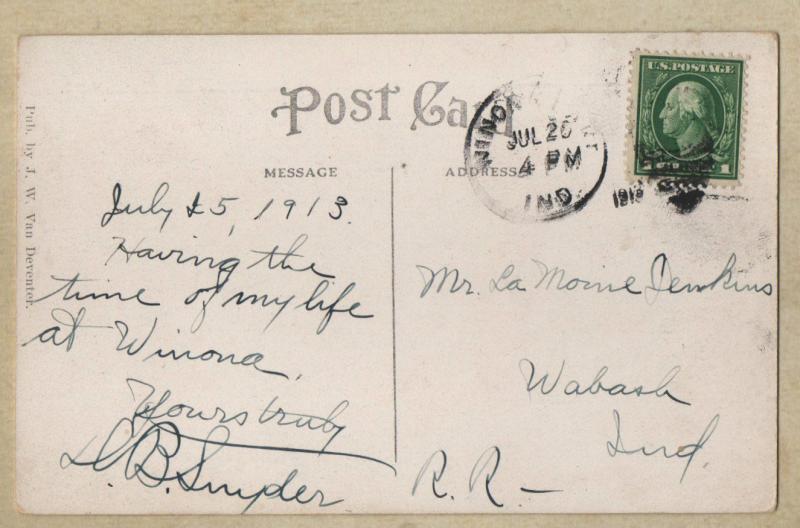 Post Card
MESSAGE
ADDRESS
Pub. by J. W. Van Deventer.
July 25, 1913.
Having the
time of my life
at Winona.
Yours truly
B. Snyder
Mr. La Moine Jenkins
Wabash
Ind.
R. R. —
JUL 26
4 PM
IND
1913
U.S. POSTAGE
1